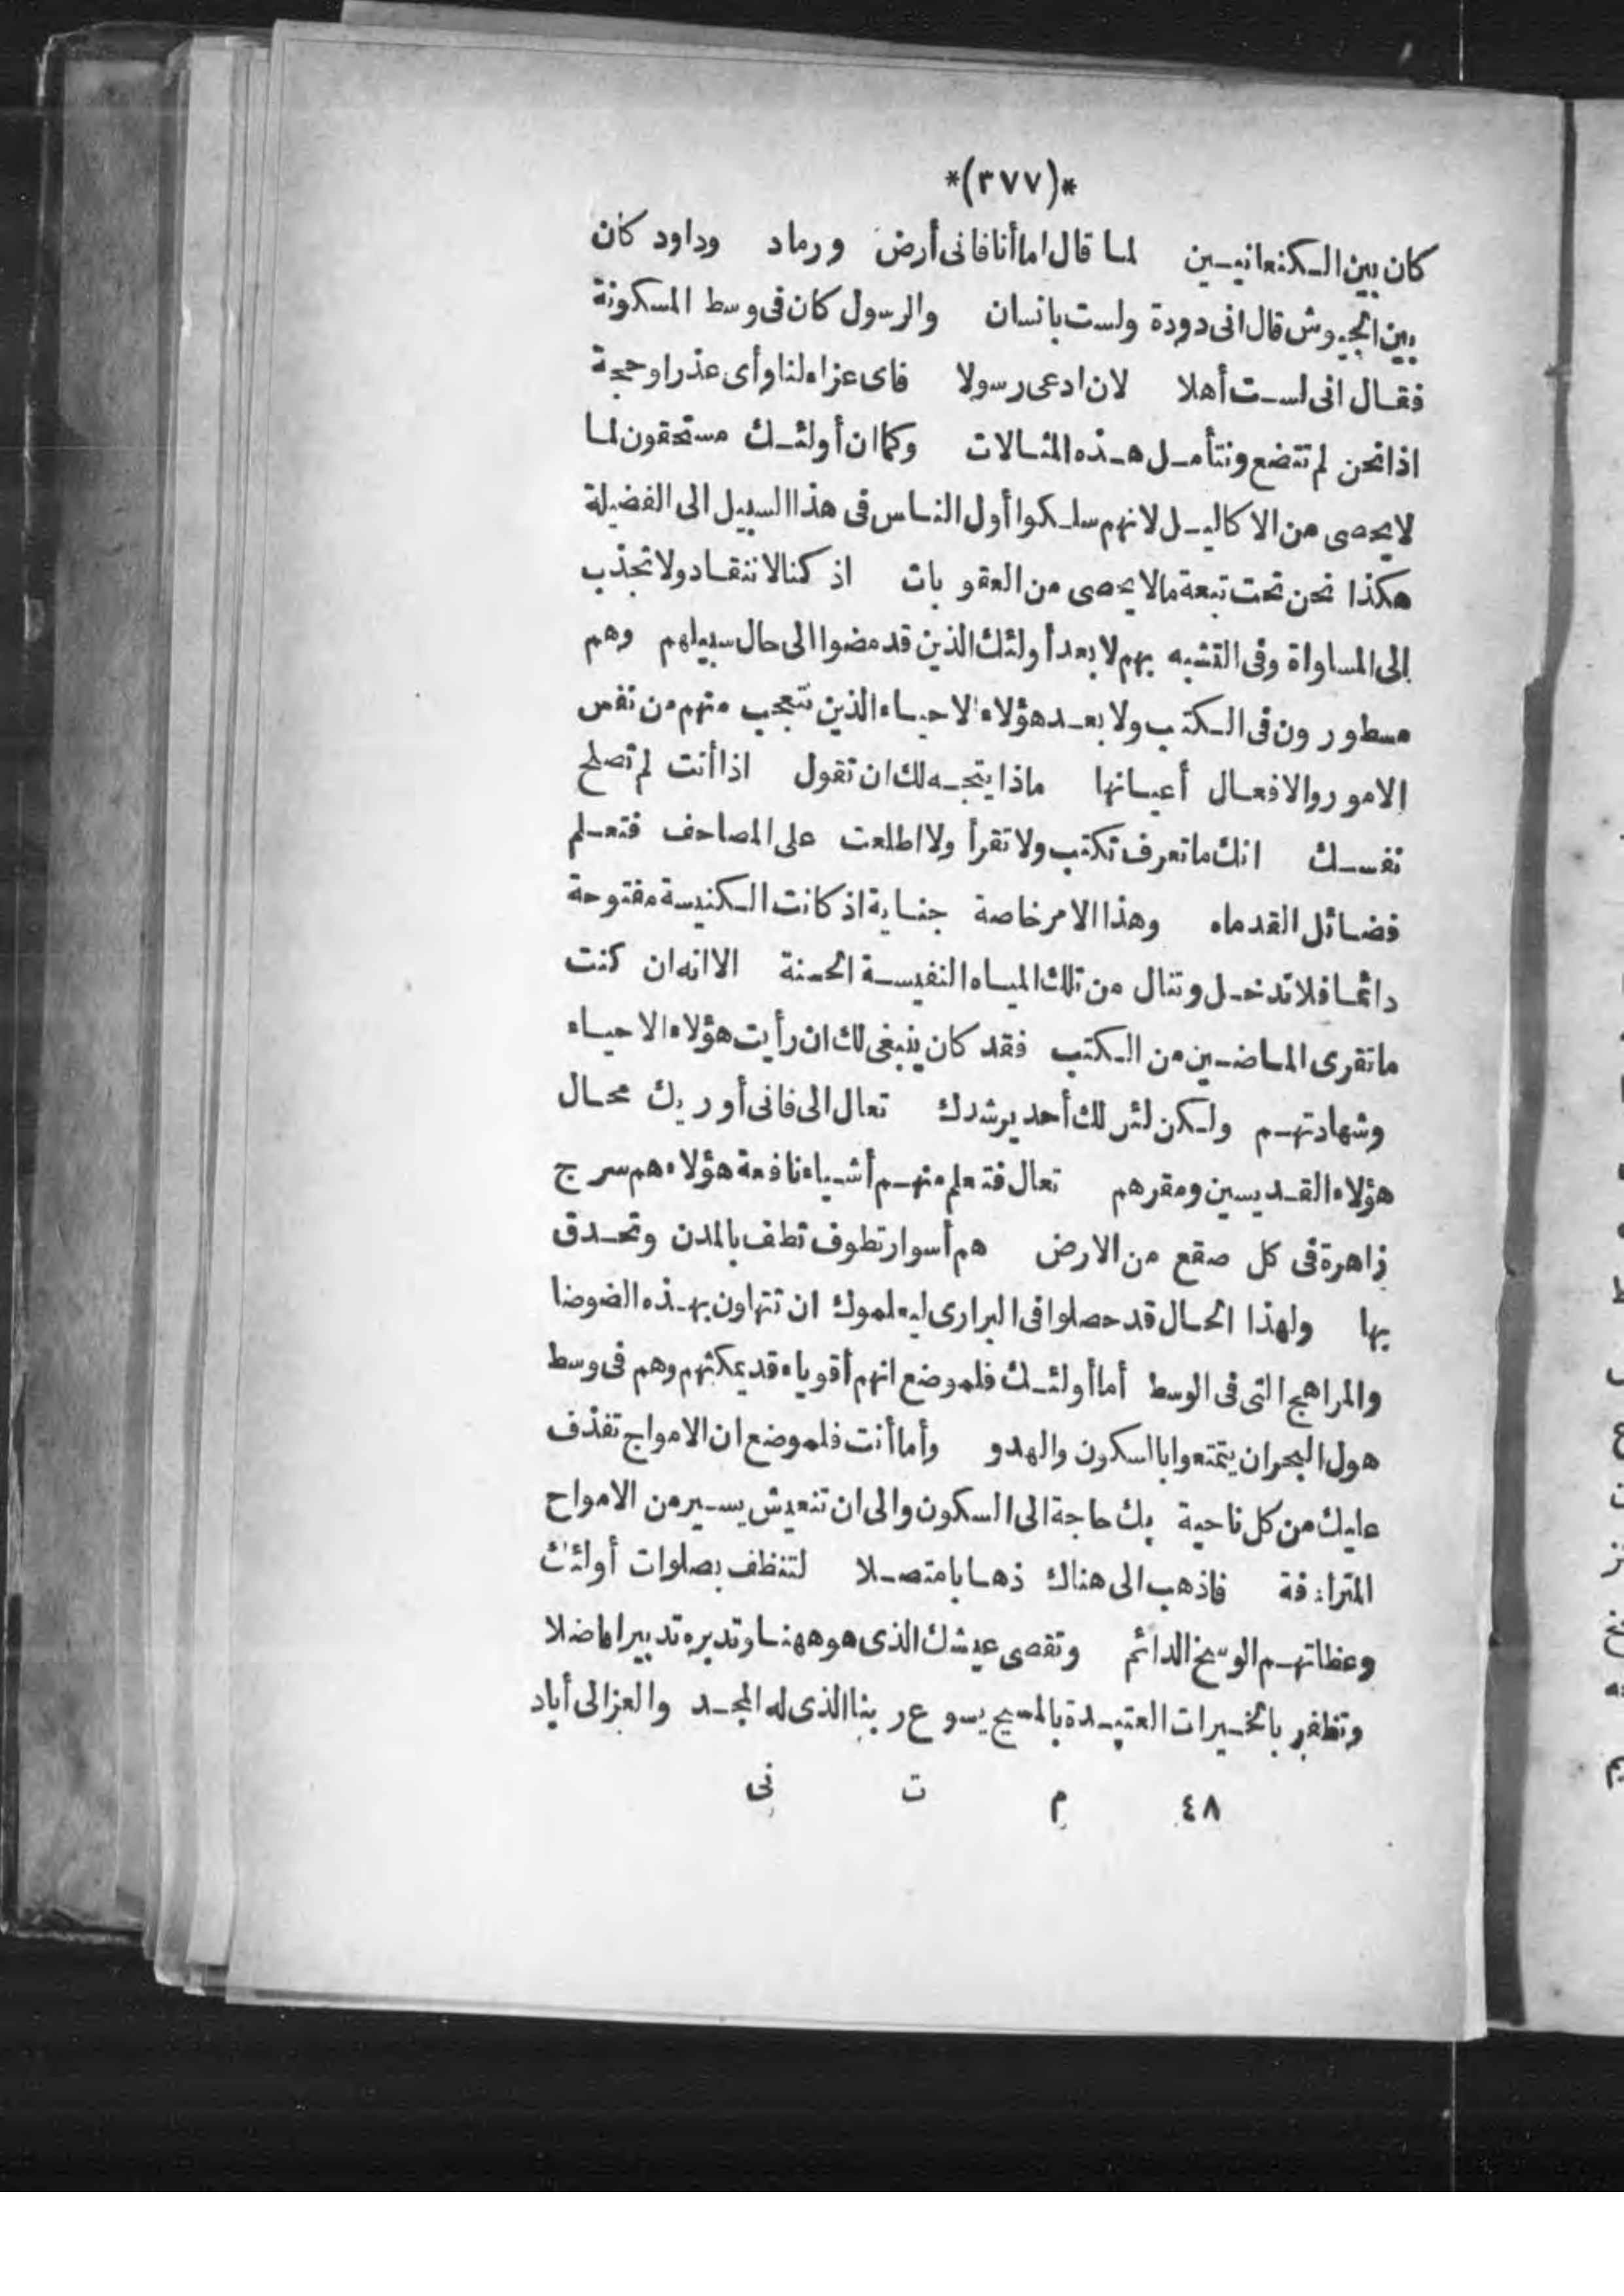 *(٣٧٧)*
كان بين الكنعانيين لما قال اما أنا فانى أرض ورماد وداود كان
بين الجيوش قال انى دودة ولست بانسان والرسول كان فى وسط المسكونة
فقال انى لست أهلا لان ادعى رسولا فاى عزاء لنا وأى عذر او حجة
اذا نحن لم نتضع ونتأمل هذه المثالات وكما ان أولئك مستحقون لما
لا يحصى من الاكاليل لانهم سلكوا أول الناس فى هذا السبيل الى الفضيلة
هكذا نحن تحت تبعة ما لا يحصى من العقوبات اذ كنا لا ننقاد ولا نجذب
الى المساواة وفى التشبه بهم لا بعد أولئك الذين قد مضوا الى حال سبيلهم وهم
مسطورون فى الكتب ولا بعد هؤلاء الاحياء الذين نتعجب منهم من نفس
الامور والافعال أعيانها ماذا يتجه لك ان تقول اذا أنت لم تصلح
نفسك انك ما تعرف تكتب ولا تقرأ ولا اطلعت على المصاحف فتعلم
فضائل القدماء وهذا الامر خاصة جناية اذ كانت الكنيسة مفتوحة
دائما فلا تدخل وتنال من تلك المياه النفيسة الحسنة الا انه ان كنت
ما تقرى الماضين من الكتب فقد كان ينبغى لك ان رأيت هؤلاء الاحياء
وشهادتهم ولكن لئر لك أحد يرشدك تعال الى فانى أوريك محال
هؤلاء القديسين ومقرهم تعال فتعلم منهم أشياء نافعة هؤلاء هم سرج
زاهرة فى كل صقع من الارض هم أسوار تطوف تطف بالمدن وتحدق
بها ولهذا الحال قد حصلوا فى البرارى ليعلموك ان تتهاون بهذه الضوضا
والمراهج التى فى الوسط أما أولئك فلموضع انهم أقوياء قد يمكنهم وهم فى وسط
هول البحر ان يتمتعوا بالسكون والهدو وأما أنت فلموضع ان الامواج تقذف
عليك من كل ناحية بك حاجة الى السكون والى ان تنعيش يسير من الامواج
المترادفة فاذهب الى هناك ذهابا متصلا لتنظف بصلوات أولئك
وعظاتهم الوسخ الدائم وتقصى عيشك الذى هو ههنا وتدبره تدبيرا فاضلا
وتظفر بالخيرات العتيدة بالمسيح يسوع ربنا الذى له المجد والعز الى أباد
٤٨ م ت نى